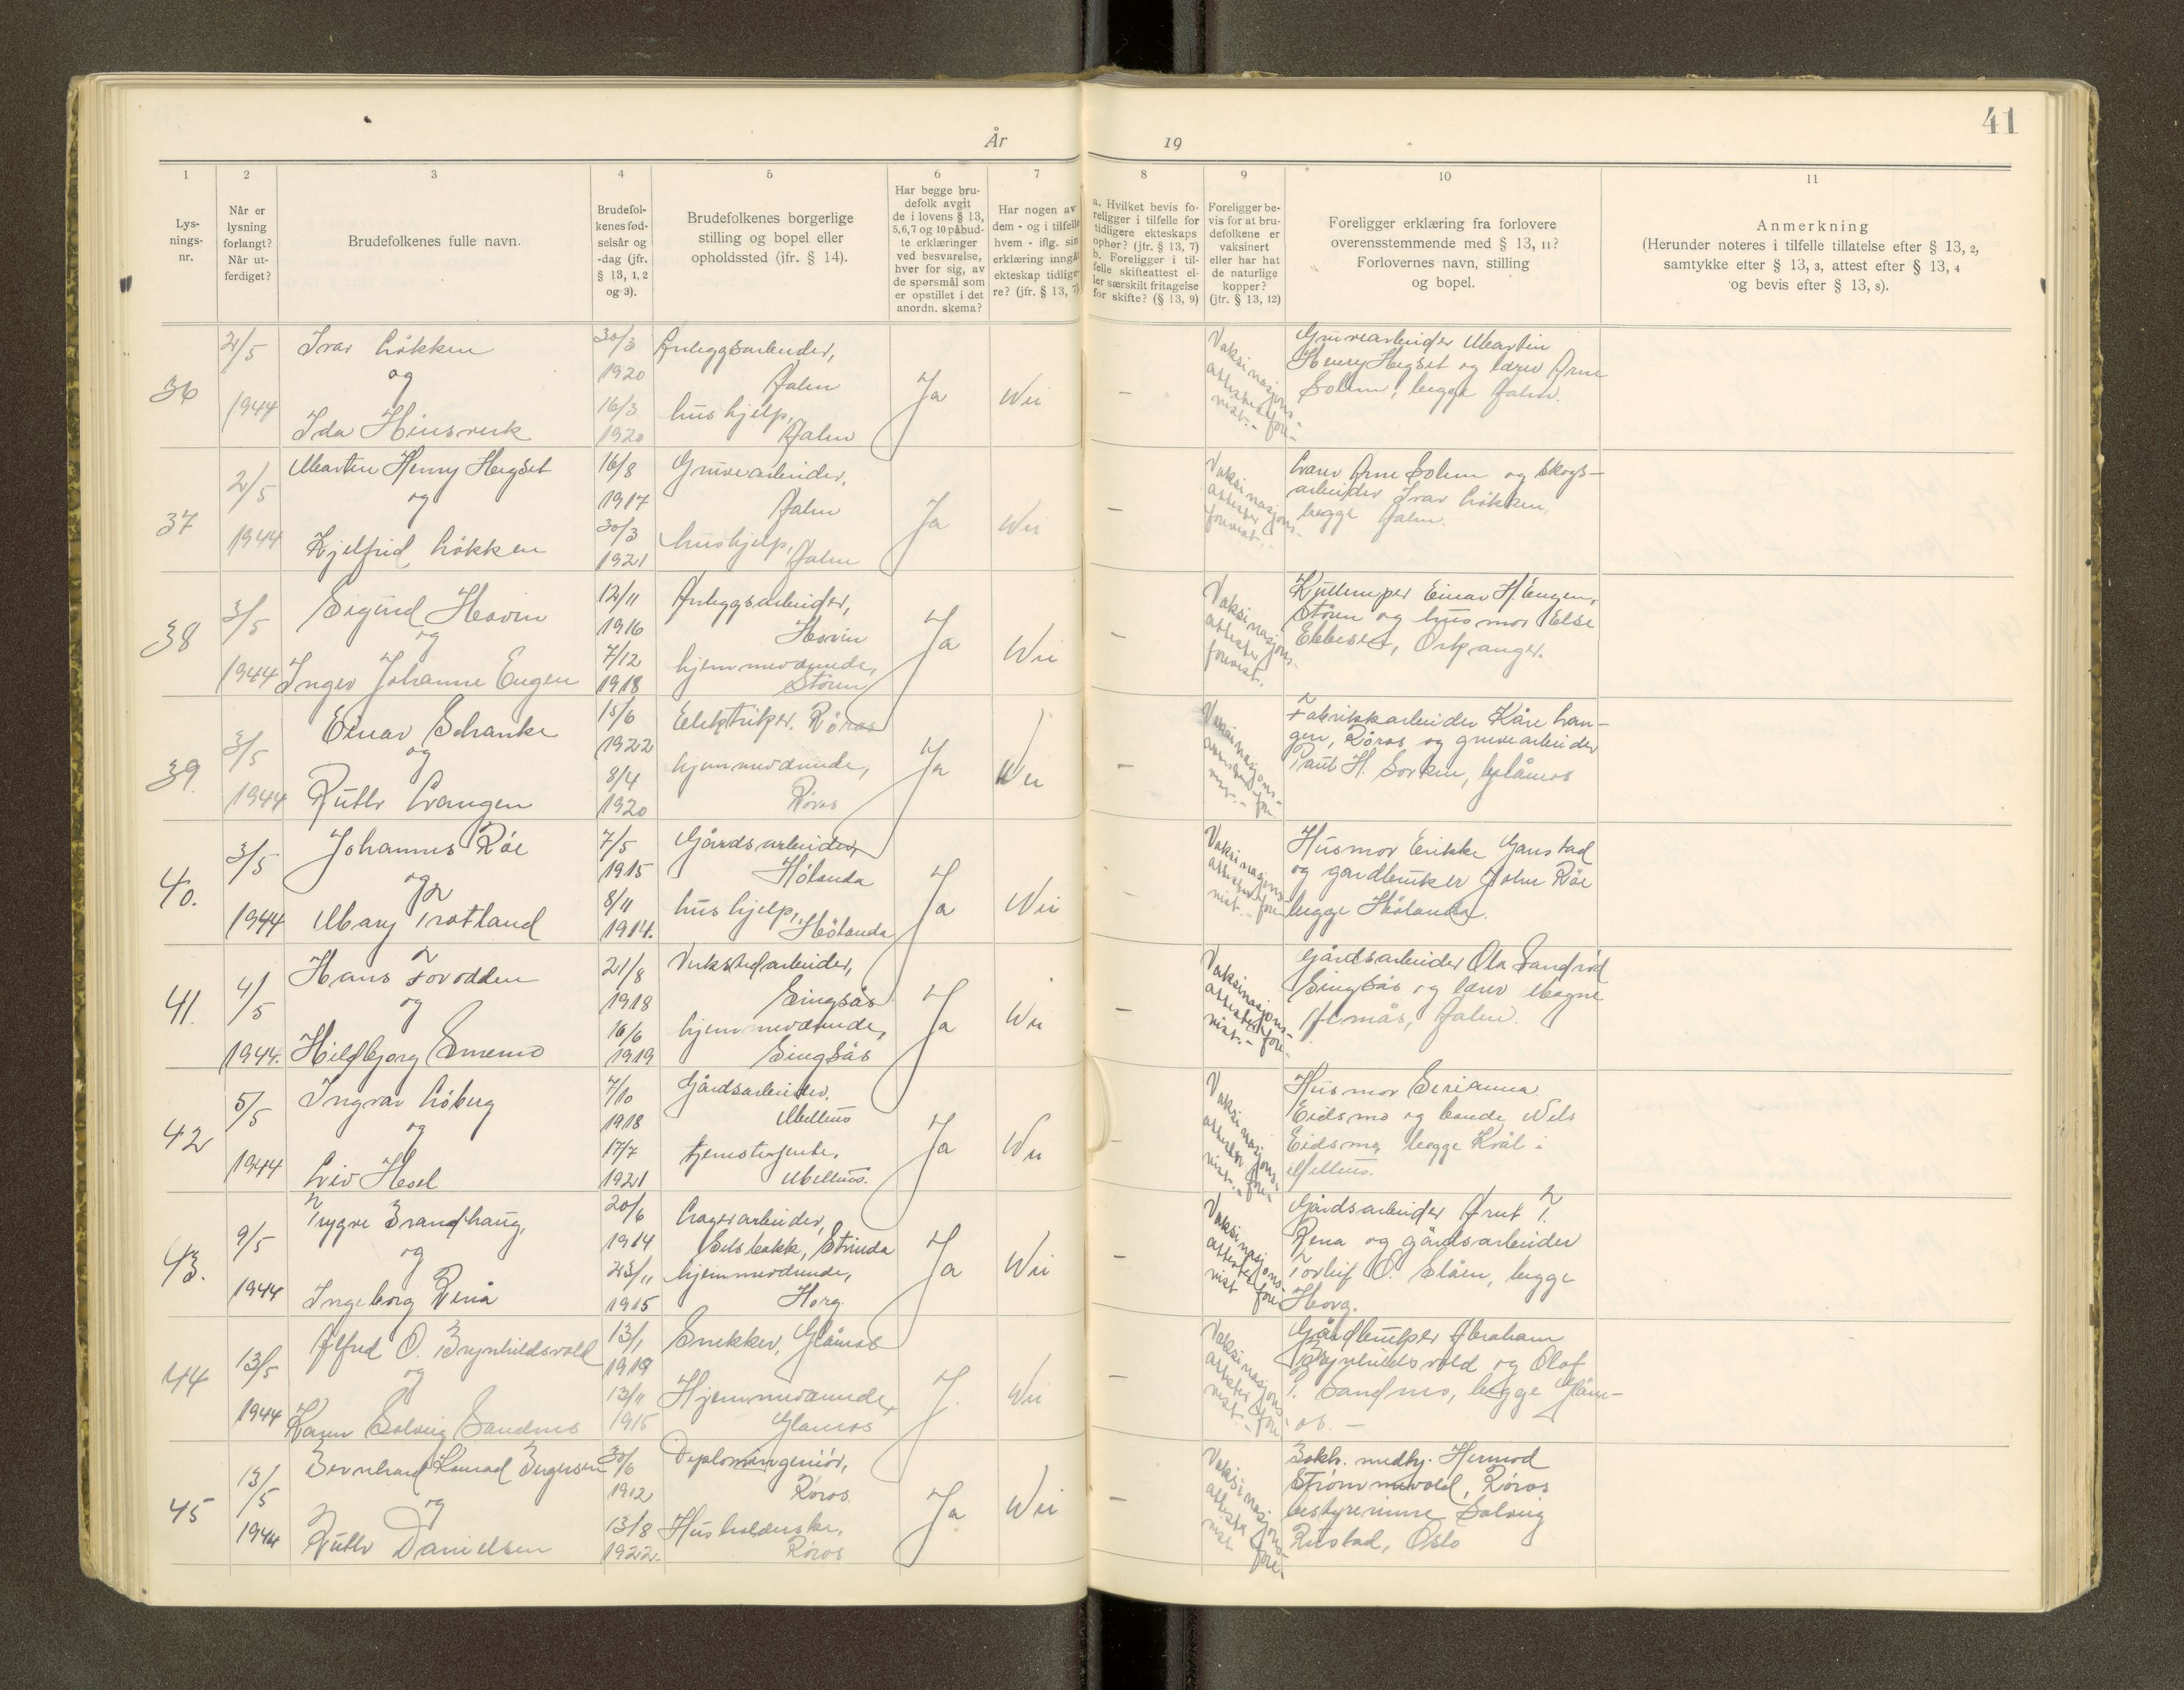 41
År
19
1
2
3
4
5
6
7
8
9
10
11
Lys-
nings-
nr.
Når er
lysning
forlangt?
Når ut-
ferdiget?
Brudefolkenes fulle navn.
Brudefol-
kenes fød-
selsår og
-dag (jfr.
§ 13, 1, 2
og 3).
Brudefolkenes borgerlige
stilling og bopel eller
opholdssted (jfr. § 14).
Har begge bru-
defolk avgit
de i lovens § 13,
5, 6, 7 og 10 påbud-
te erklæringer
ved besvarelse,
hver for sig, av
de spørsmål som
er opstillet i det
anordn. skema?
Har nogen av
dem - og i tilfelle
hvem - iflg. sin
erklæring inngå
ekteskap tidlige
re? (jfr. § 13, 7)
a. Hvilket bevis fo-
religger i tilfelle for
tidligere ekteskaps
ophør? (jfr. § 13, 7)
b. Foreligger i til-
felle skifteattest el-
ler særskilt fritagelse
for skifte? (§ 13, 9)
Foreligger be-
vis for at bru-
defolkene er
vaksinert
eller har hat
de naturlige
kopper?
(jfr. § 13, 12)
Foreligger erklæring fra forlovere
overensstemmende med § 13, 11?
Forlovernes navn, stilling
og bopel.
Anmerkning
(Herunder noteres i tilfelle tillatelse efter § 13, 2,
samtykke efter § 13, 3, attest efter § 13, 4
og bevis efter § 13, 8).
36
2/5
1944
Ivar Løkken
og
Ida Hinsverk
30/3
1920
16/3
1920
Anleggsarbeider,
Aalen
hushjelp,
Aalen
Ja
Nei
-
Vaksinasjons-
attester fore-
vist.-
Gruvearbeider Martin
Henry Hegset og lærer Arne
Solem, begge Aalen.
37
2/5
1944
Martin Henry Hegset
og
Kjelfrid Løkken
16/8
1917
30/3
1921
Gruvearbeider,
Aalen
hushjelp,
Aalen
Ja
Nei
-
Vaksinasjons-
attester
forevist.-
Lærer Arne Solem og skogs-
arbeider Ivar Løkken,
begge Aalen.
38
3/5
1944
Sigurd Hovin
og
Inger Johanne Engen
12/11
1916
7/12
1918
Anleggsarbeider,
Hovin
hjemmeværende,
Støren
Ja
Nei
-
Vaksinasjons-
attester
forevist.
Einar H. Engen,
Støren og husmor Else
Ebbesen, Orkanger.
39.
3/5
1944
Einar Schanke
og
Ruth Langen
15/6
1922
8/4
1920
Elektriker, Røros
hjemmeværende,
Røros
Ja
Nei
-
Vaksinasjons-
Fabrikkarbeider Kåre Lan-
gen, Røros og gruvearbeider
Paul H. Sorken, Glåmos
40.
3/5
1944
Johannes Røe
og
Mary Trotland
7/5
1915
8/11
1914.
Gårdsarbeider,
Hølonda
hushjelp,
Hølonda
Ja
Nei
-
Vaksinasjons-
attester fore-
vist.-
Husmor Erikke Gaustad
og gardbruker John Røe
begge Hølonda.
41.
4/5
1944.
Hans Forodden
og
Hildbjørg Enemo
21/8
1918
16/6
1919
Verkstedarbeider,
Singsås
hjemmeværende,
Singsås
Ja
Nei
-
Vaksinasjons-
attester fore-
vist.-
Gårdsarbeider Ola Sandrød
Singsås og lærer Magne
Almås, Aalen.
42
5/5
1944
Ingvar Løberg
og
Liv Hesel
7/10
1918
17/7
1921
Gårdsarbeider,
Melhus
tjenestejente,
Melhus.
Ja
Nei
-
Vaksinasjons-
attester fore-
vist.-
Husmor Serianna
Eidsmo og bonde Nels
Eidsmo, begge Kvål i
Melhus.
43.
9/5
1944
Trygve Brandhaug,
og
Ingeborg Renå
20/6
1914
23/11
1915
Lagerarbeider,
Selsbakk, Strinda
hjemmeværende,
Horg.
Ja
Nei
-
Vaksinasjons-
attester fore-
vist
Gårdsarbeider Arnt T.
Rena og gårdsarbeider
Torleif O. Slåen, begge
Horg.
44
13/5
1944
Alfred O. Brynhildsvold
og
Karen Solveig Sandmo
13/1
1919
13/11
1915
Snekker, Glåmos
Hjemmeværende,
Glåmos
J.
Nei
-
Vaksinasjons-
attester fore-
vist.-
Gårdbruker Abraham
Brynhildsvold og Olaf
P. Sandmo, begge Glåm-
os. -
45
13/5
1944
Bernhard Konrad Bergersen
og
Ruth Danielsen
30/6
1912
13/8
1922.
Diplomingeniør,
Røros.
Husholderske,
Røros
Ja
Nei
-
Vaksinasjons-
attester fore-
vist
Bokh. medhj. Hermod
Strømmevold, Røros
bestyrerinne Solveig
Rustad, Oslo